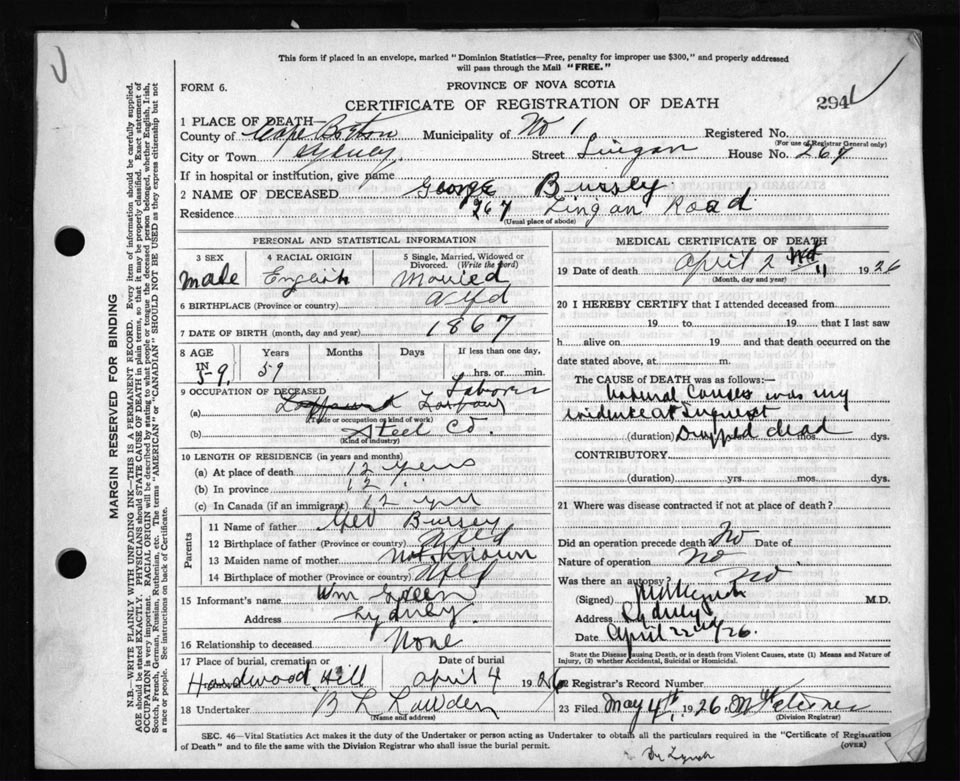 This form if placed in an envelope, marked "Dominion Statistics—Free, penalty for improper use $300," and properly addressed
will pass through the Mail "FREE."
FORM 6.
PROVINCE OF NOVA SCOTIA
CERTIFICATE OF REGISTRATION OF DEATH
294
1 PLACE OF DEATH—
County of Cape Breton Municipality of No 1 Registered No.
(For use of Registrar General only)
City or Town Sydney Street Lingan House No. 267
If in hospital or institution, give name
2 NAME OF DECEASED George Bursey
Residence 267 Lingan Road
(Usual place of abode)
PERSONAL AND STATISTICAL INFORMATION
3 SEX 4 RACIAL ORIGIN 5 Single, Married, Widowed or Divorced. (Write the word)
Male English Married
6 BIRTHPLACE (Province or country) Nfld
7 DATE OF BIRTH (month, day and year) 1867
8 AGE Years Months Days If less than one day,
IN 59. 59 hrs. or min.
9 OCCUPATION OF DECEASED Laborer
(a)
(Trade or occupation or kind of work)
(b) Steel Co.
(Kind of industry)
10 LENGTH OF RESIDENCE (in years and months)
(a) At place of death 12 years
(b) In province 12
(c) In Canada (if an immigrant) 12
Parents
11 Name of father Geo Bursey
12 Birthplace of father (Province or country) Nfld
13 Maiden name of mother Not known
14 Birthplace of mother (Province or country) Nfld
15 Informant's name Wm Green
Address Sydney
16 Relationship to deceased None
17 Place of burial, cremation or Date of burial
Hardwood Hill April 4 1926
18 Undertaker B L Lowden
(Name and address)
MEDICAL CERTIFICATE OF DEATH
19 Date of death April 2 1926
(Month, day and year)
20 I HEREBY CERTIFY that I attended deceased from
19 to 19 that I last saw
h alive on 19 and that death occurred on the
date stated above, at m.
The CAUSE OF DEATH was as follows:—
Natural Causes was my
evidence at Inquest
(duration) Dropped dead mos. dys.
CONTRIBUTORY
(duration) yrs. mos. dys.
21 Where was disease contracted if not at place of death?
Did an operation precede death No Date of
Nature of operation No
Was there an autopsy? No
(Signed) M.D.
Address Sydney
Date April 22nd/26.
State the Disease causing Death, or in death from Violent Causes, state (1) Means and Nature of
Injury, (2) whether Accidental, Suicidal or Homicidal.
22 Registrar's Record Number
23 Filed May 4th 1926
(Division Registrar)
SEC. 46—Vital Statistics Act makes it the duty of the Undertaker or person acting as Undertaker to obtain all the particulars required in the "Certificate of Registration
of Death" and to file the same with the Division Registrar who shall issue the burial permit.
(OVER)
MARGIN RESERVED FOR BINDING
N.B.—WRITE PLAINLY WITH UNFADING INK—THIS IS A PERMANENT RECORD. Every item of information should be carefully supplied.
AGE should be stated EXACTLY. PHYSICIANS should STATE CAUSE OF DEATH in plain terms, so that it may be properly classified. Exact statement of
OCCUPATION is very important. RACIAL ORIGIN will be described by stating to what people or tongue the deceased person belonged, whether English, Irish,
Scotch, French, German, Russian, Ruthenian, etc. The terms "AMERICAN" or "CANADIAN" SHOULD NOT BE USED as they express citizenship but not
a race or people. See instructions on back of Certificate.